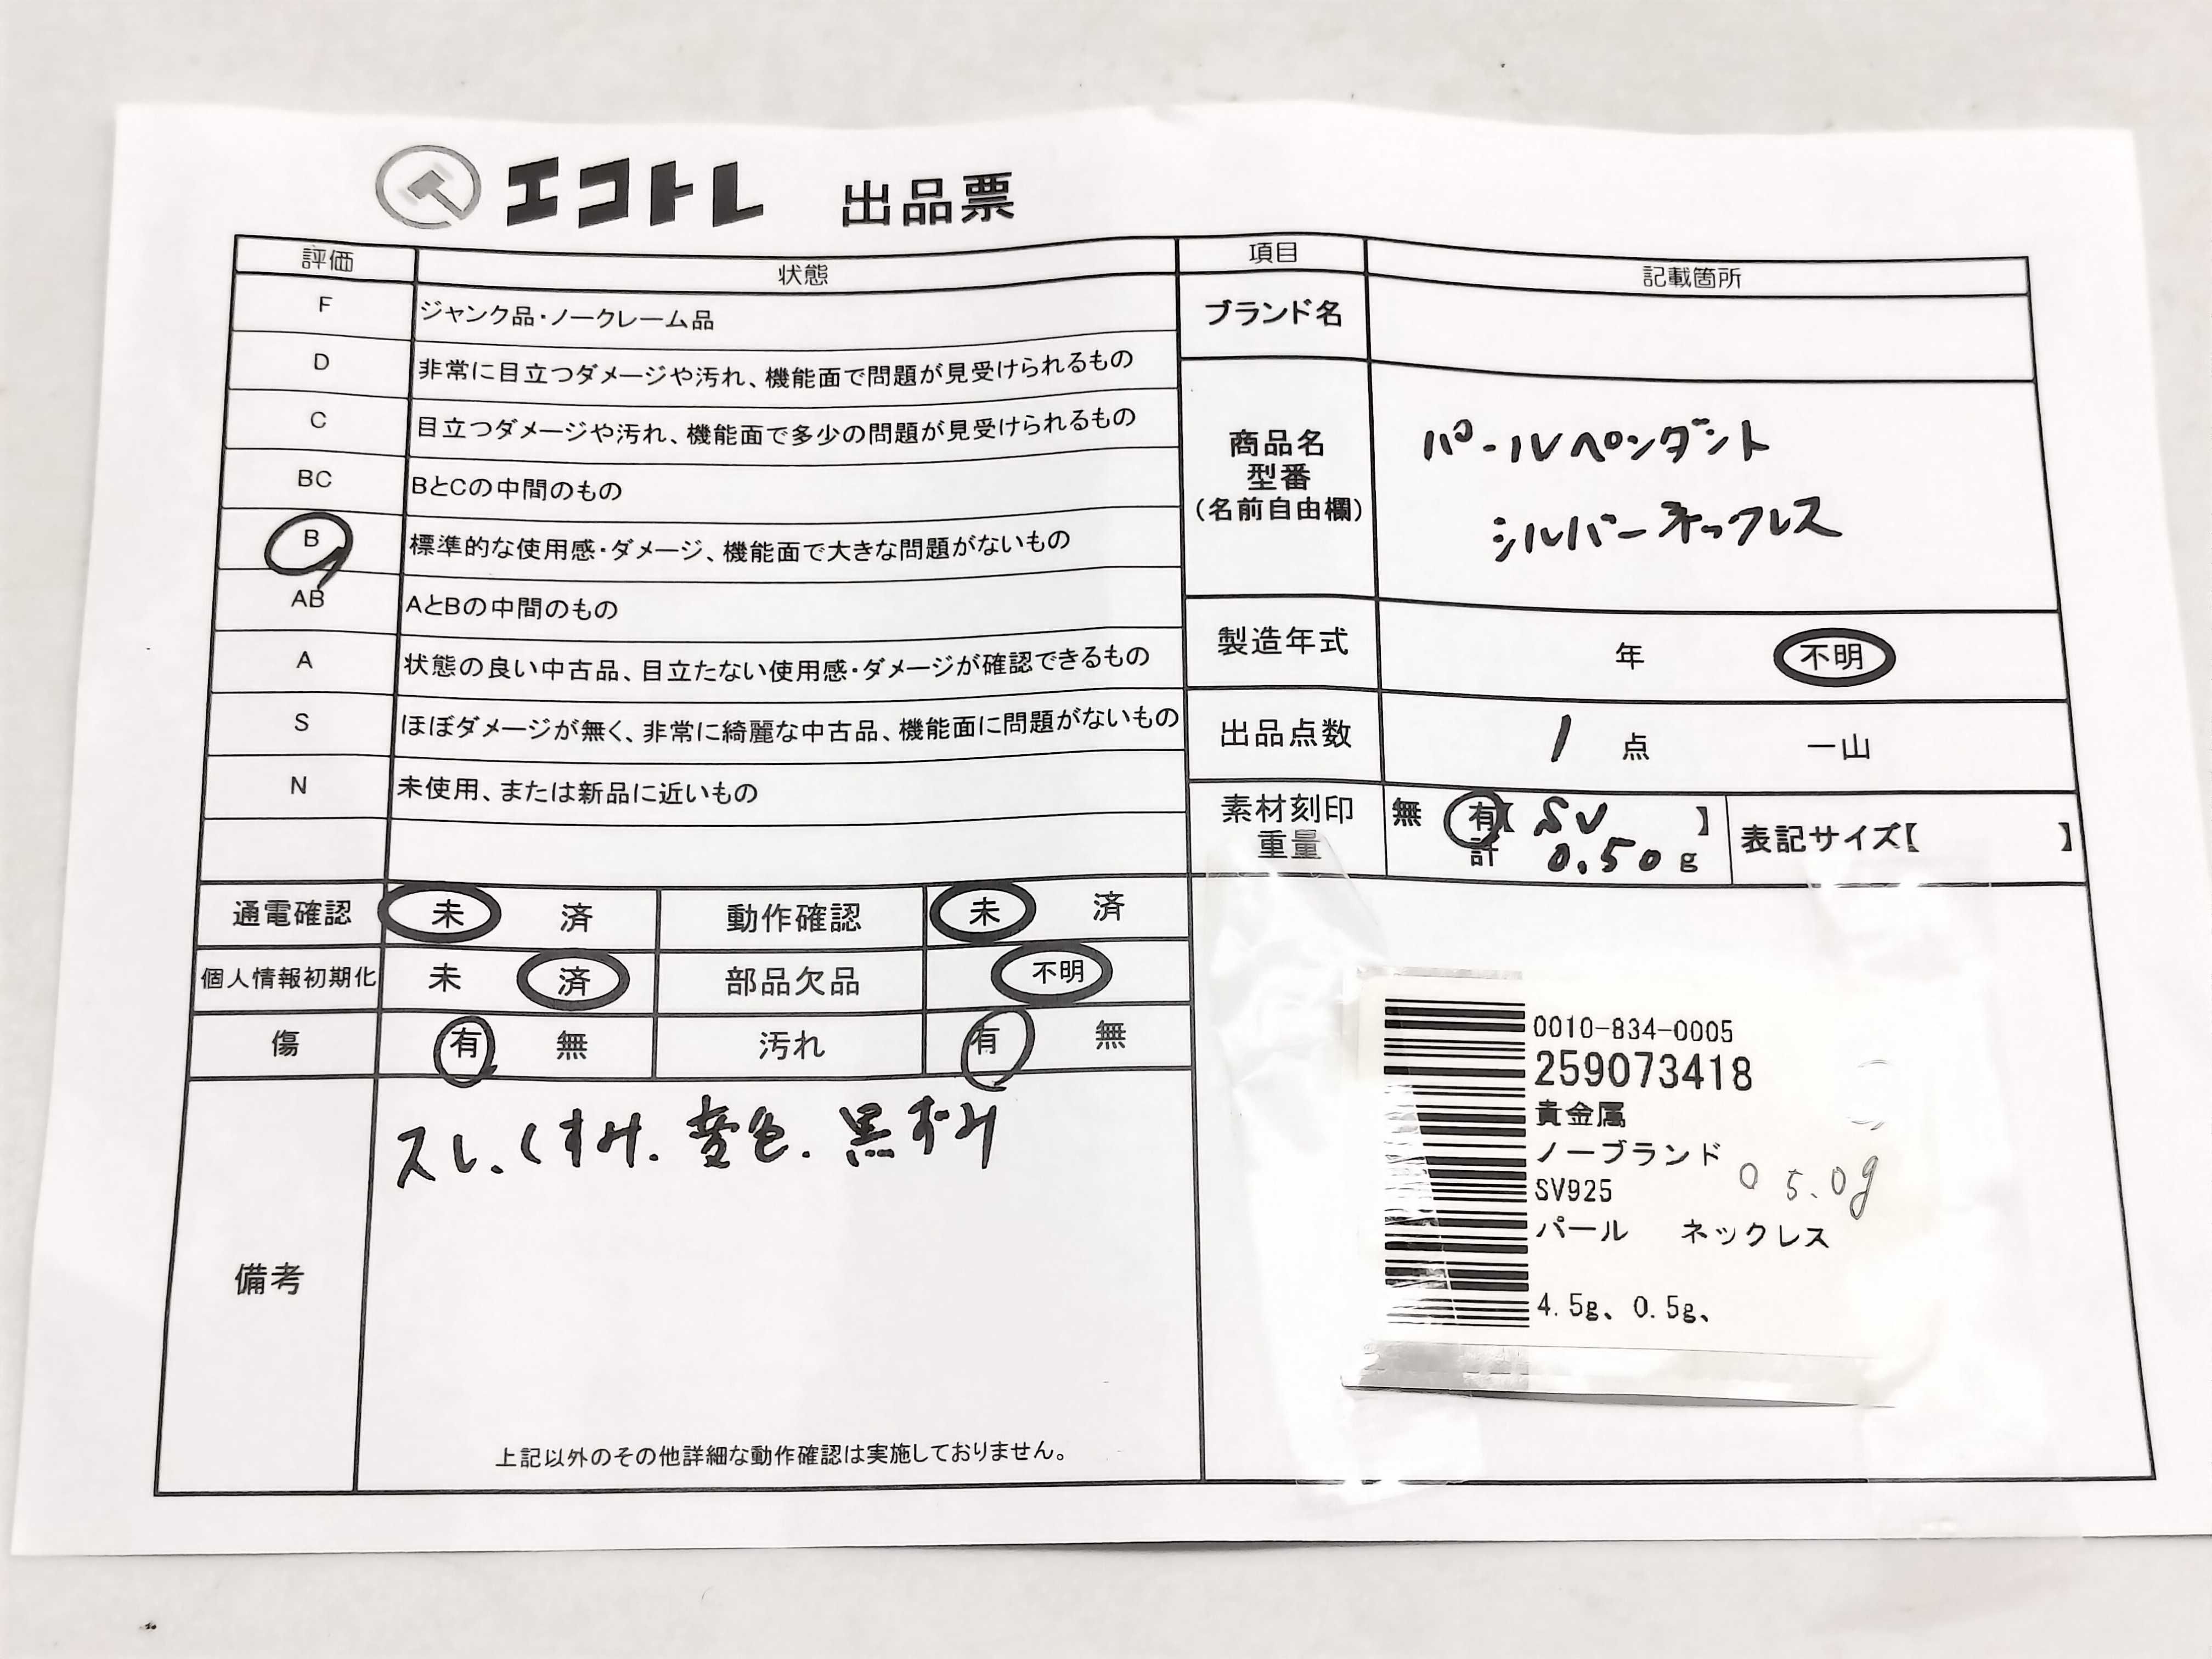 エコトレ 出品票
評価 状態
F ジャンク品・ノークレーム品
D 非常に目立つダメージや汚れ、機能面で問題が見受けられるもの
C 目立つダメージや汚れ、機能面で多少の問題が見受けられるもの
BC BとCの中間のもの
B 標準的な使用感・ダメージ、機能面で大きな問題がないもの
AB AとBの中間のもの
A 状態の良い中古品、目立たない使用感・ダメージが確認できるもの
S ほぼダメージが無く、非常に綺麗な中古品、機能面に問題がないもの
N 未使用、または新品に近いもの
項目 記載箇所
ブランド名
商品名
型番
(名前自由欄)
パールペンダント
シルバーネックレス
製造年式 年 不明
出品点数 1 点 一山
素材刻印
重量
無 有【 SV 】
計 0.50 g
表記サイズ【 】
通電確認 未 済 動作確認 未 済
個人情報初期化 未 済 部品欠品 不明
傷 有 無 汚れ 有 無
備考
スレ、くすみ、変色、黒ずみ
上記以外のその他詳細な動作確認は実施しておりません。
0010-834-0005
259073418
貴金属
ノーブランド
SV925
0 5.0g
パール ネックレス
4.5g、0.5g、